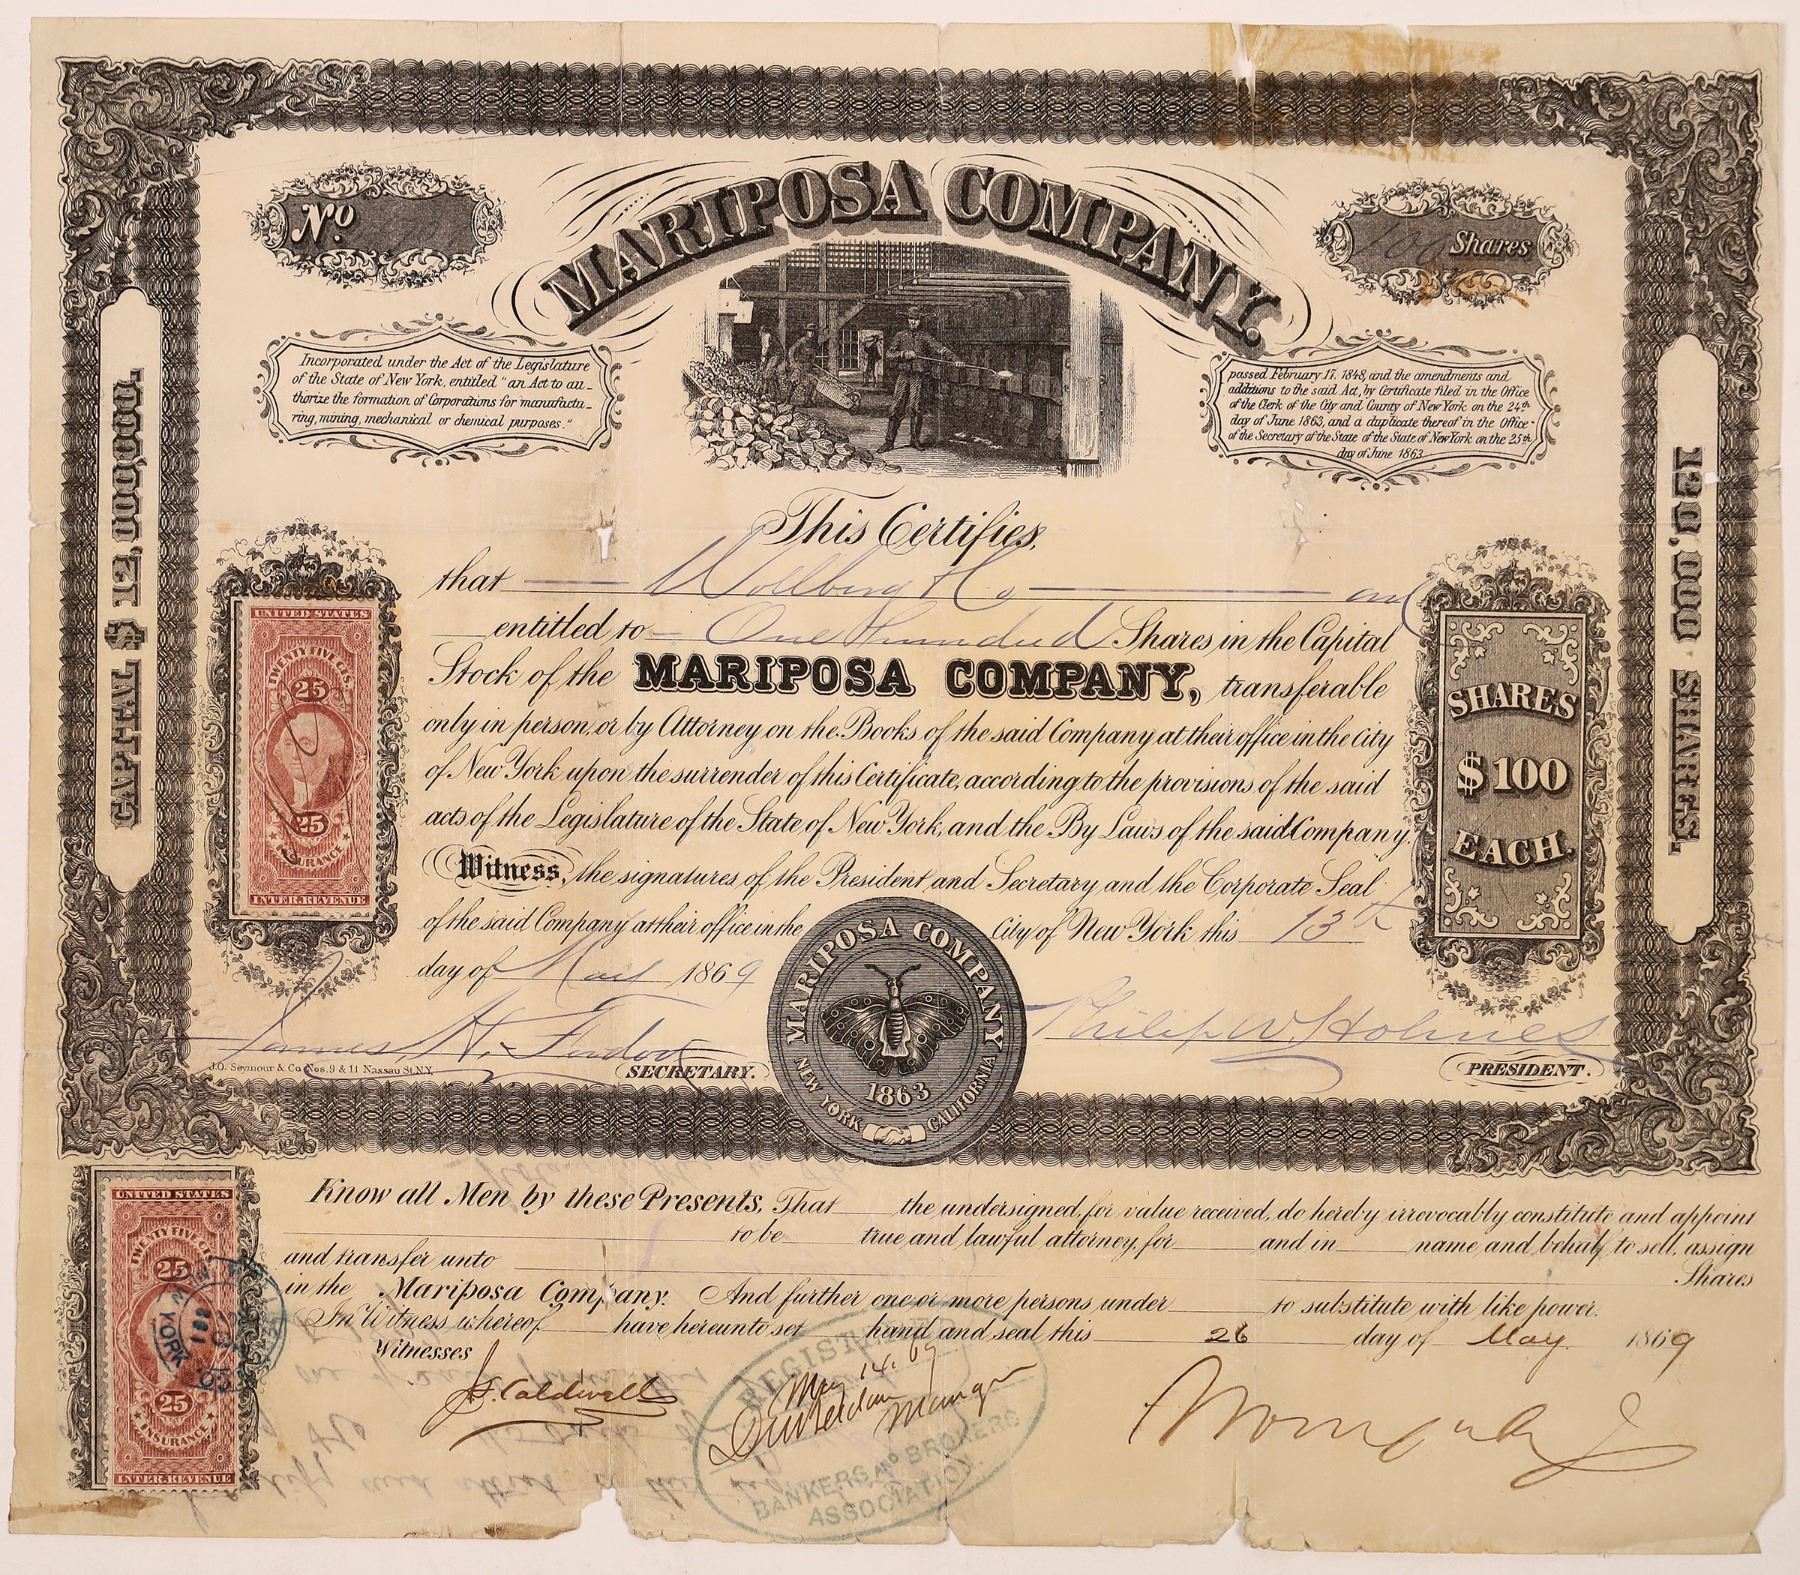 MARIPOSA COMPANY.
No.
100 Shares
Incorporated under the Act of the Legislature
of the State of New York, entitled "an Act to au-
thorize the formation of Corporations for manufactu-
ring, mining, mechanical or chemical purposes."
passed February 17. 1848, and the amendments and
additions to the said Act, by Certificate filed in the Office
of the Clerk of the City and County of New York on the 24th
day of June 1863, and a duplicate thereof in the Office
of the Secretary of the State of the State of New York on the 25th
day of June 1863.
CAPITAL $ 12,000,000.
120,000 SHARES.
This Certifies,
that Wollberg & Co
entitled to One Hundred Shares in the Capital
Stock of the MARIPOSA COMPANY, transferable
only in person, or by Attorney on the Books of the said Company at their office in the City
of New York upon the surrender of this Certificate, according to the provisions of the said
acts of the Legislature of the State of New York, and the By Laws of the said Company.
Witness, the signatures of the President and Secretary and the Corporate Seal
of the said Company at their office in the City of New York this 13th
day of May 1869
UNITED STATES
TWENTY FIVE CTS.
25
25
INSURANCE
INTER. REVENUE
SHARES
$100
EACH.
MARIPOSA COMPANY
NEW YORK CALIFORNIA
1863
James H.
SECRETARY.
Philip W. Holmes
PRESIDENT.
J.O. Seymour & Co. Nos. 9 & 11 Nassau St. N.Y.
Know all Men by these Presents, That the undersigned, for value received, do hereby irrevocably constitute and appoint
to be true and lawful attorney, for and in name and behalf, to sell, assign
and transfer unto
Shares
in the Mariposa Company. And further one or more persons under to substitute with like power.
In Witness whereof have hereunto set hand and seal this 26 day of May 1869
Witnesses
J. Caldwell
UNITED STATES
TWENTY FIVE CTS.
25
NEW YORK
25
INSURANCE
INTER. REVENUE
REGISTERED
May 14. 69
Manager
BANKERS AND BROKERS
ASSOCIATION.